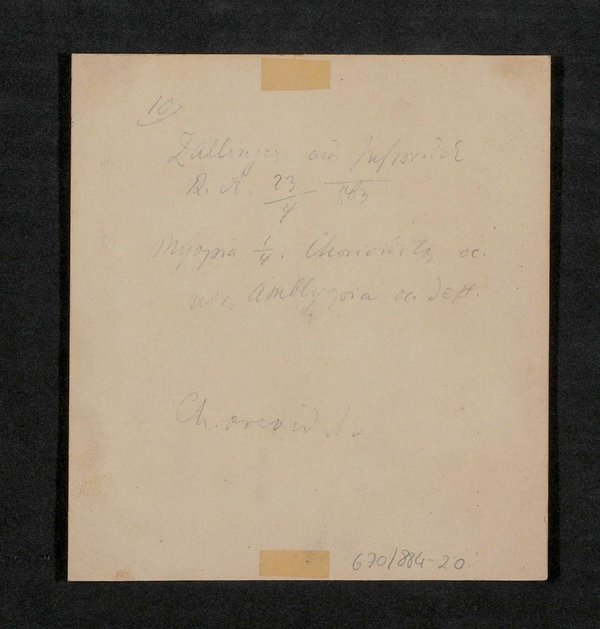 10.
Zallinger aus Insbruck
R. A. 23/4
Myopia 1/4. Chorioiditis oc.
utr. Amblyopia oc. dext.
Chorioidit.
670/884-20